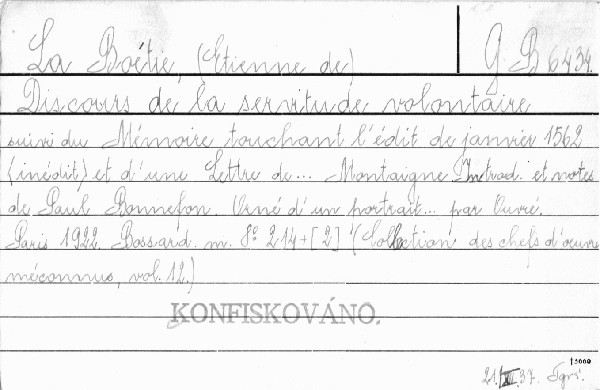 La Boétie, (Etienne de) G B 6434.
Discours de la servitude volontaire
suivi du Mémoire touchant l'édit de janvier 1562
(inédit) et d'une Lettre de... Montaigne Introd. et notes
de Paul Bonnefon Orné d'un portrait... par Ouvré.
Paris 1922. Bossard. m. 8º 214+[2] (Collection des chefs d'œuvre
méconnus, vol. 12.)
KONFISKOVÁNO.
13000
21./XII.37.